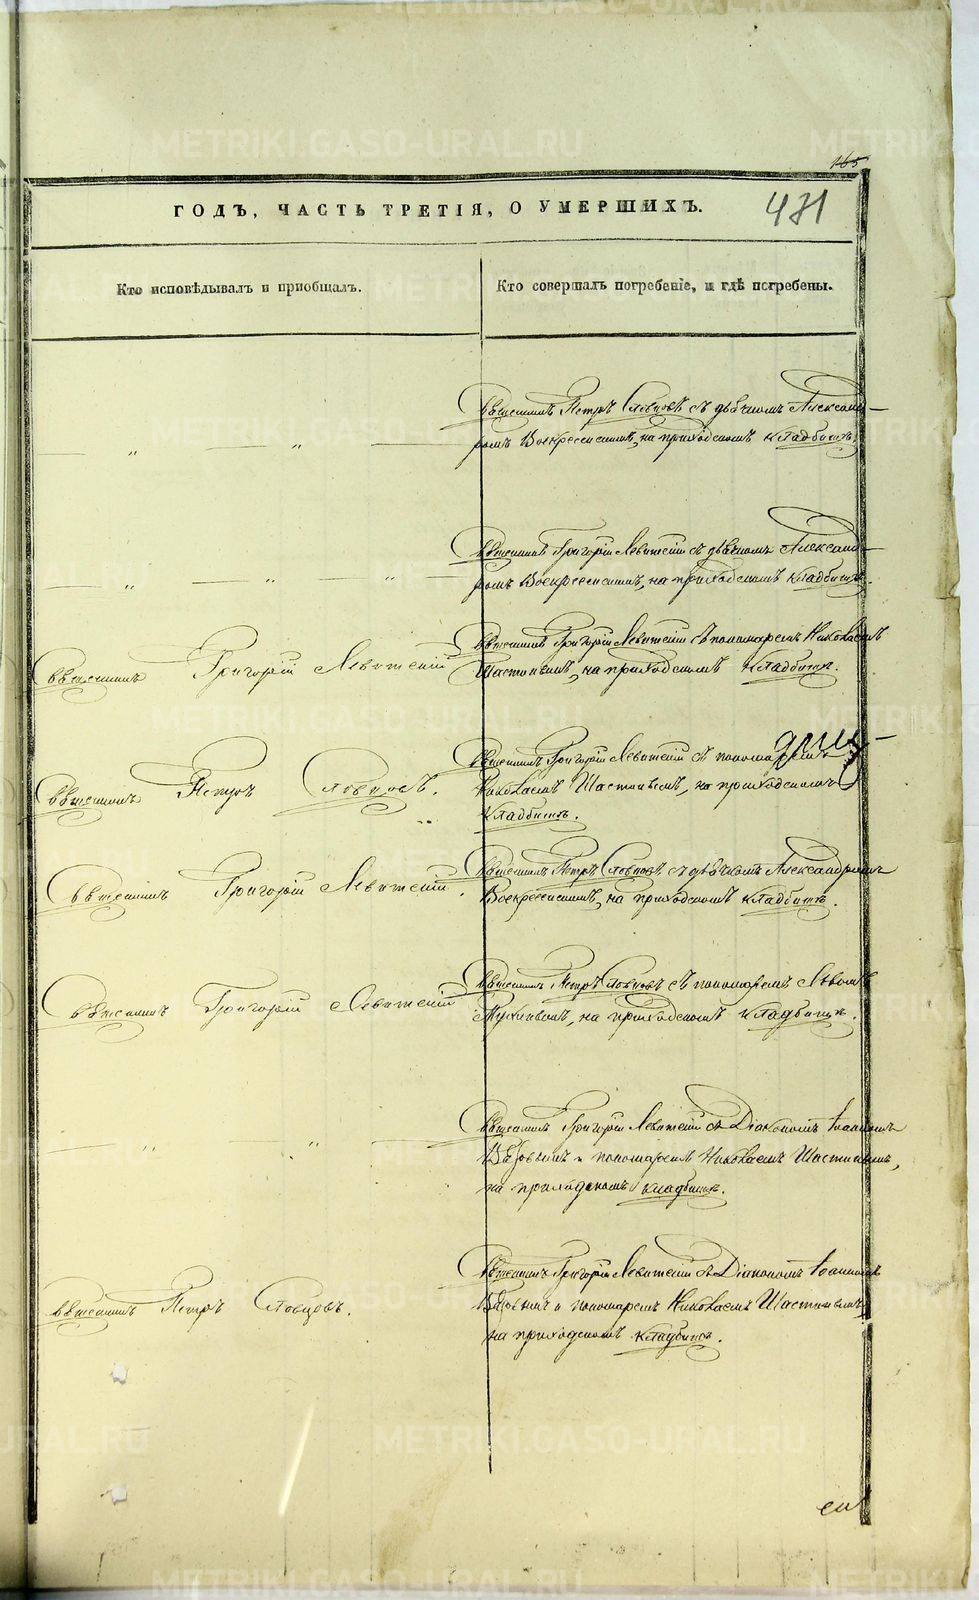 165
ГОДЪ, ЧАСТЬ ТРЕТІЯ, О УМЕРШИХЪ.
471
Кто исповѣдывалъ и пріобщалъ.
Кто совершалъ погребеніе, и гдѣ погребены.
Священникъ Петръ Словцовъ съ дьячкомъ Алексан-
ромъ Воскресенскимъ, на приходскомъ кладбищѣ.
Священникъ Григорій Левитскій съ дьячкомъ Алексан-
ромъ Воскресенскимъ, на приходскомъ кладбищѣ.
Священникъ Григорій Левитскій съ пономаремъ Николаемъ
Священникъ Григорій Левитскій
на приходскомъ кладбищѣ.
Священникъ Григорій Левитскій съ пономаремъ
Священникъ Петръ Словцовъ.
Николаемъ на приходскомъ
кладбищѣ.
Священникъ Петръ Словцовъ съ дьячкомъ Александромъ
Священникъ Григорій Левитскій.
Воскресенскимъ, на приходскомъ кладбищѣ.
Священникъ Петръ Словцовъ съ пономаремъ
Священникъ Григорій Левитскій
на приходскомъ кладбищѣ.
Священникъ Григорій Левитскій съ Діакономъ Іоанномъ
и пономаремъ Николаемъ
на приходскомъ кладбищѣ.
Священникъ Григорій Левитскій съ Діакономъ Іоанномъ
Священникъ Петръ Словцовъ.
и пономаремъ Николаемъ
на приходскомъ кладбищѣ.
METRIKI.GASO-URAL.RU